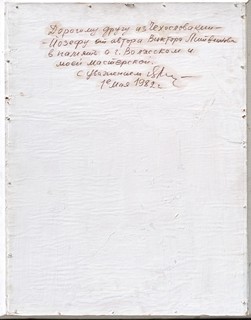 Дорогому другу из Чехословакии –
– Йозефу от автора Виктора
в память о г. Волжском и
моей мастерской.
с уважением
1е мая 1982 г.